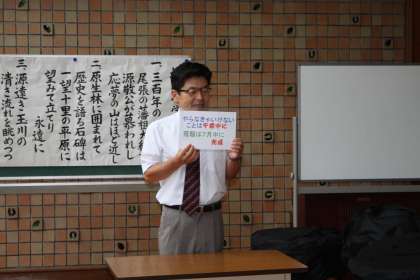 一、三百年の
尾張の藩祖
源敬公が慕われし
応夢の山はほど近し
二、原生林に囲まれて
歴史を語る石碑は
一望十里の平原に
望みて立てり 永遠に
三、源遠き玉川の
清き流れを眺めつつ
やらなきゃいけない
ことは午前中に
宿題は7月中に
完成